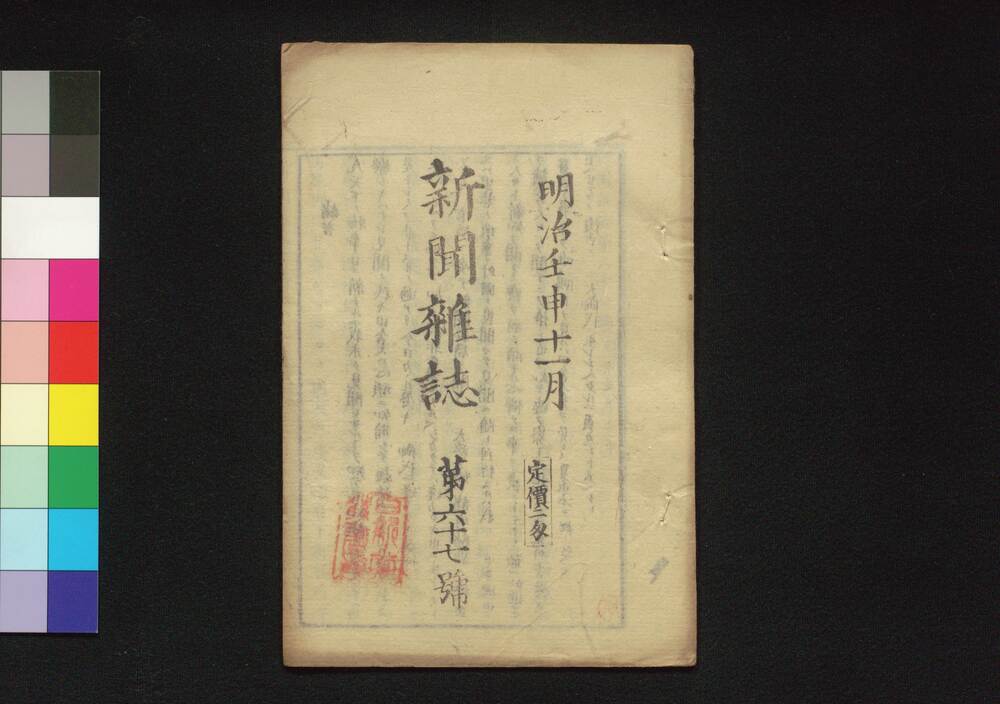 明治壬申十一月
定價二匁
新聞雜誌
第六十七號